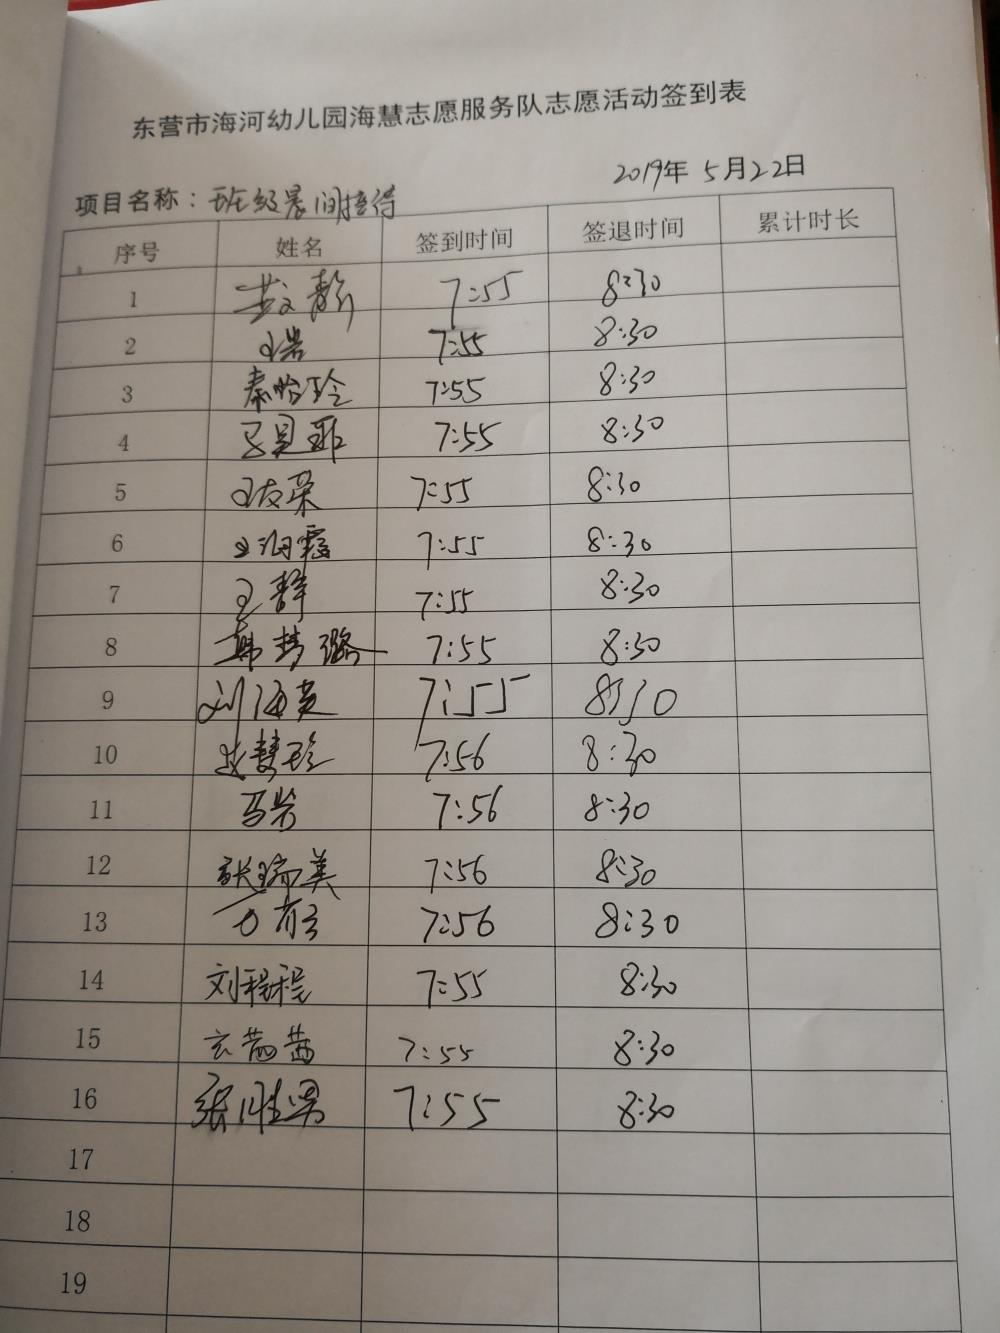 东营市海河幼儿园海慧志愿服务队志愿活动签到表
2019年 5月22日
项目名称：班级晨间接待
序号 姓名 签到时间 签退时间 累计时长
1 7:55 8:30
2 7:55 8:30
3 秦怡玲 7:55 8:30
4 7:55 8:30
5 王友荣 7:55 8:30
6 王海霞 7:55 8:30
7 王静 7:55 8:30
8 韩梦璐 7:55 8:30
9 刘海英 7:55 8:30
10 7:56 8:30
11 马岩 7:56 8:30
12 张瑞美 7:56 8:30
13 7:56 8:30
14 刘程程 7:55 8:30
15 7:55 8:30
16 张胜男 7:55 8:30
17
18
19